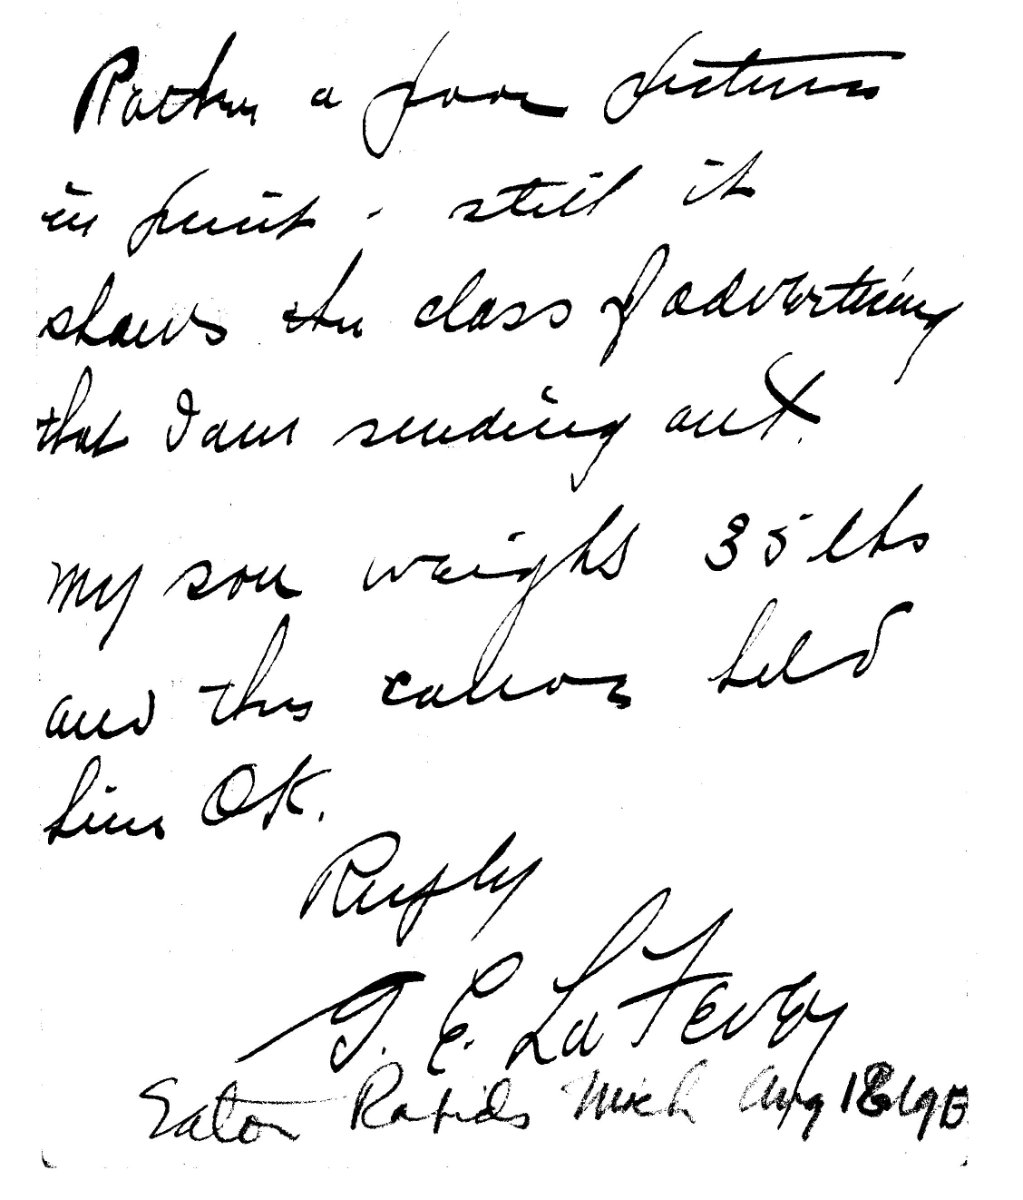 Rather a poor picture
in print - still it
shows the class of advertising
that I am sending out.
My son weighs 35 lbs
and this held
him OK.
Respfly
E. LaFevey
Eaton Rapids Mich Aug 18